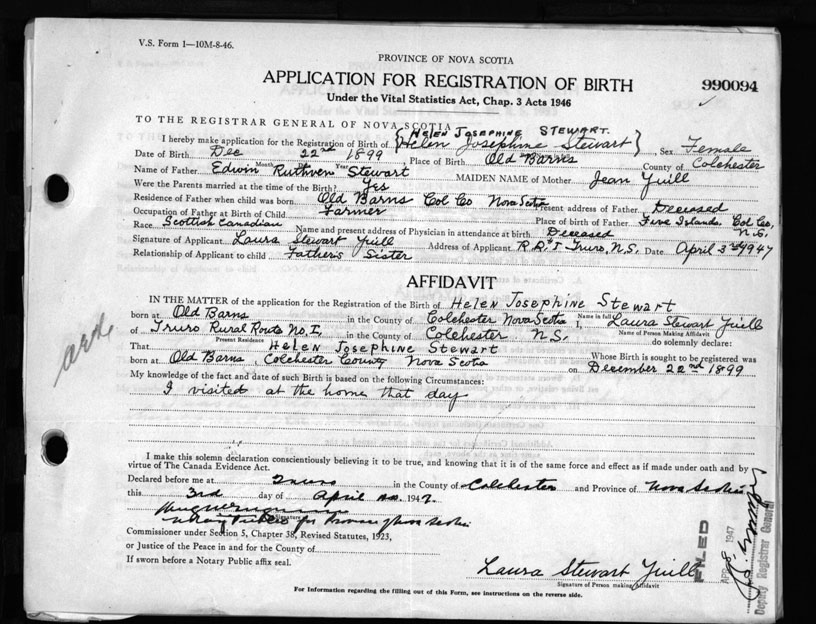 V.S. Form 1—10M-8-46.
PROVINCE OF NOVA SCOTIA
APPLICATION FOR REGISTRATION OF BIRTH
990094
Under the Vital Statistics Act, Chap. 3 Acts 1946
TO THE REGISTRAR GENERAL OF NOVA SCOTIA
HELEN JOSEPHINE STEWART.
I hereby make application for the Registration of Birth of Helen Josephine Stewart, Sex Female
Date of Birth Dec 22nd 1899, Place of Birth Old Barns County of Colchester
Month Year
Name of Father Edwin Ruthven Stewart MAIDEN NAME of Mother Jean Yuill
Were the Parents married at the time of the Birth? Yes
Residence of Father when child was born Old Barns Col Co Nova Scotia Present address of Father Deceased
Occupation of Father at Birth of Child Farmer Place of birth of Father Five Islands. Col Co, N.S.
Race Scottish Canadian Name and present address of Physician in attendance at birth Deceased
Signature of Applicant Laura Stewart Yuill Address of Applicant R.R. 1 Truro, N.S. Date April 3rd 1947
Relationship of Applicant to child Father's Sister
AFFIDAVIT
IN THE MATTER of the application for the Registration of the Birth of Helen Josephine Stewart
Name in full
born at Old Barns in the County of Colchester Nova Scotia I, Laura Stewart Yuill
Name of Person Making Affidavit
of Truro Rural Route No. I, in the County of Colchester N.S. do solemnly declare:
Present Residence
That Helen Josephine Stewart Whose Birth is sought to be registered was
born at Old Barns, Colchester County Nova Scotia on December 22nd 1899
My knowledge of the fact and date of such Birth is based on the following Circumstances:
I visited at the home that day
I make this solemn declaration conscientiously believing it to be true, and knowing that it is of the same force and effect as if made under oath and by
virtue of The Canada Evidence Act.
Declared before me at Truro in the County of Colchester and Province of Nova Scotia
this 3rd day of April A.D. 1947.
Notary Public for Province of Nova Scotia
Commissioner under Section 5, Chapter 38, Revised Statutes, 1923,
or Justice of the Peace in and for the County of
If sworn before a Notary Public affix seal.
Laura Stewart Yuill
Signature of Person making Affidavit
For Information regarding the filling out of this Form, see instructions on the reverse side.
FILED
APR 8 1947
Deputy Registrar General